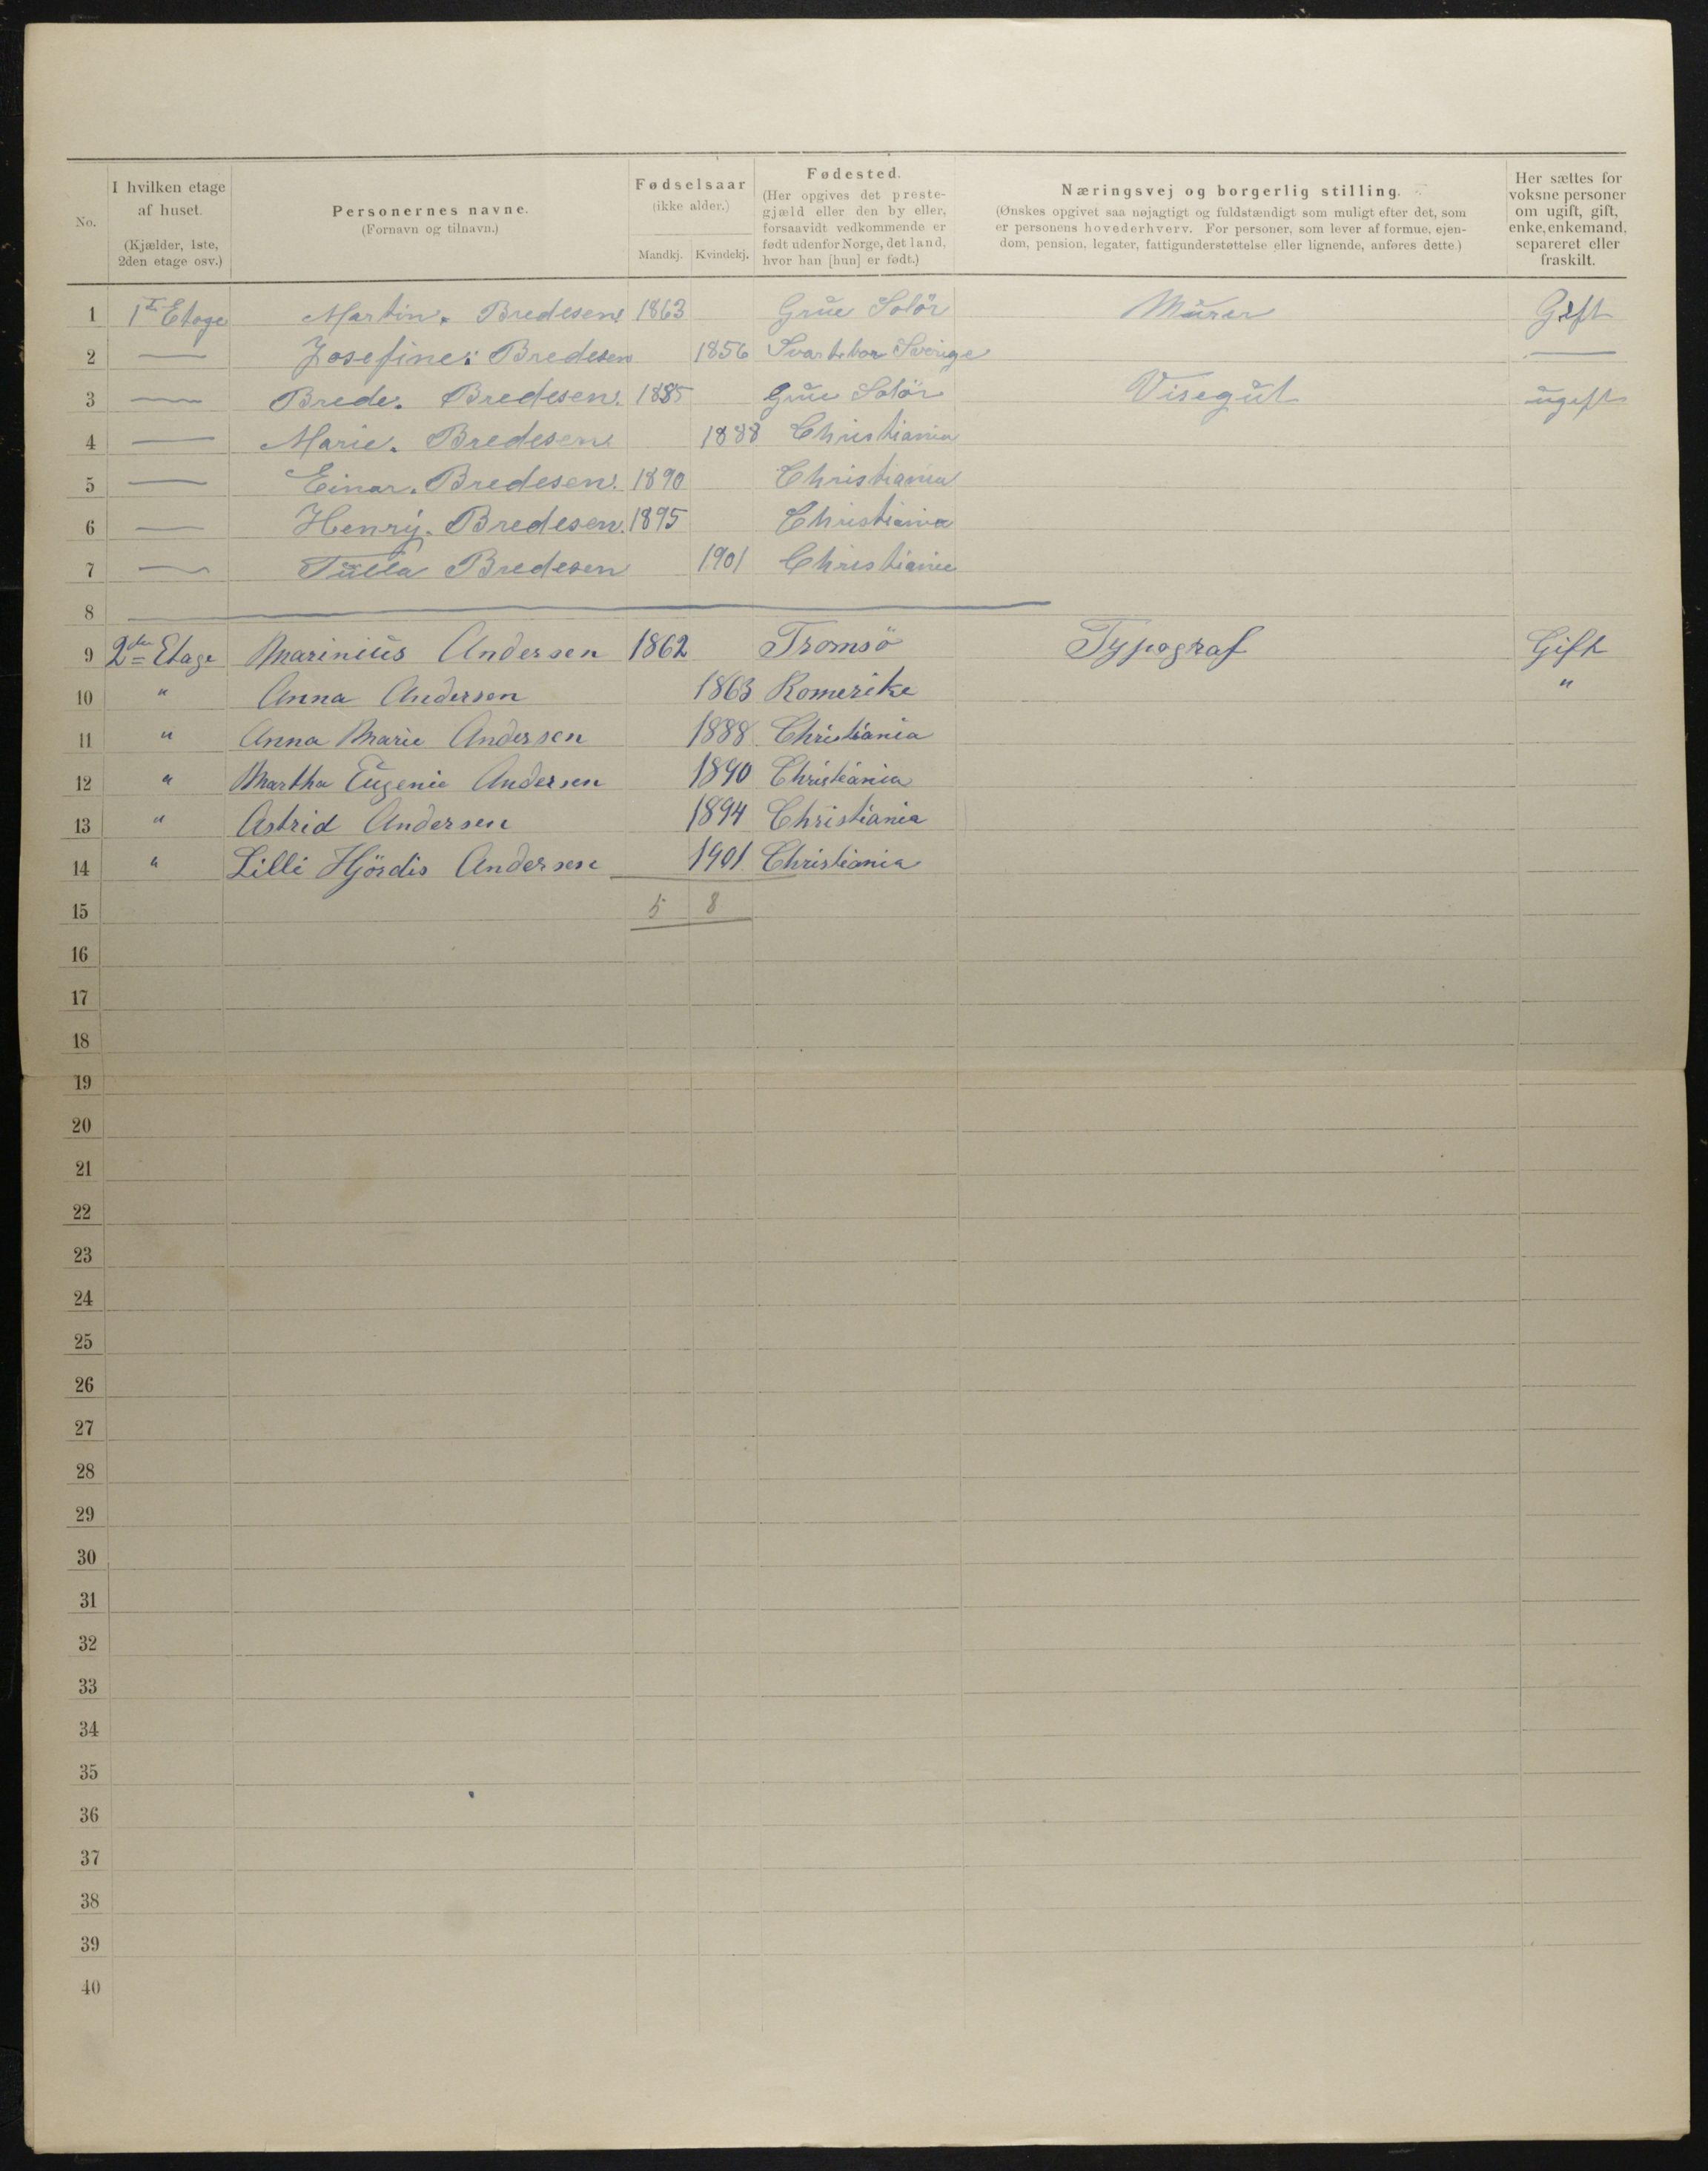 No.
I hvilken etage
af huset.
(Kjælder, 1ste,
2den etage osv.)
Personernes navne.
(Fornavn og tilnavn.)
Fødselsaar
(ikke alder.)
Mandkj. Kvindekj.
Fødested.
(Her opgives det preste-
gjæld eller den by eller,
forsaavidt vedkommende er
født udenfor Norge, det land,
hvor han [hun] er født.)
Næringsvej og borgerlig stilling.
(Ønskes opgivet saa nøjagtigt og fuldstændigt som muligt efter det, som
er personens hovederhverv. For personer, som lever af formue, ejen-
dom, pension, legater, fattigunderstøttelse eller lignende, anføres dette.)
Her sættes for
voksne personer
om ugift, gift,
enke, enkemand,
separeret eller
fraskilt.
1 Etage Martin. Bredesen 1863 Grue Solör Murer Gift
2 — Josefine: Bredesen 1856 Svartebor Sverige —
3 — Brede. Bredesen. 1885 Grue Solör Visegut ugift
4 — Marie. Bredesen 1888 Christiania
5 — Einar. Bredesen. 1890 Christiania
6 — Henry. Bredesen. 1895 Christiania
7 — Tulla Bredesen 1901 Christiania
8
9 2den Etage Marinius Andersen 1862 Tromsö Typograf Gift
10 " Anna Andersen 1863 Romerike "
11 " Anna Marie Andersen 1888 Christiania
12 " Martha Eugenie Andersen 1890 Christiania
13 " Astrid Andersen 1894 Christiania
14 " Lilli Hjördis Andersen 1901 Christiania
15 5 8
16
17
18
19
20
21
22
23
24
25
26
27
28
29
30
31
32
33
34
35
36
37
38
39
40